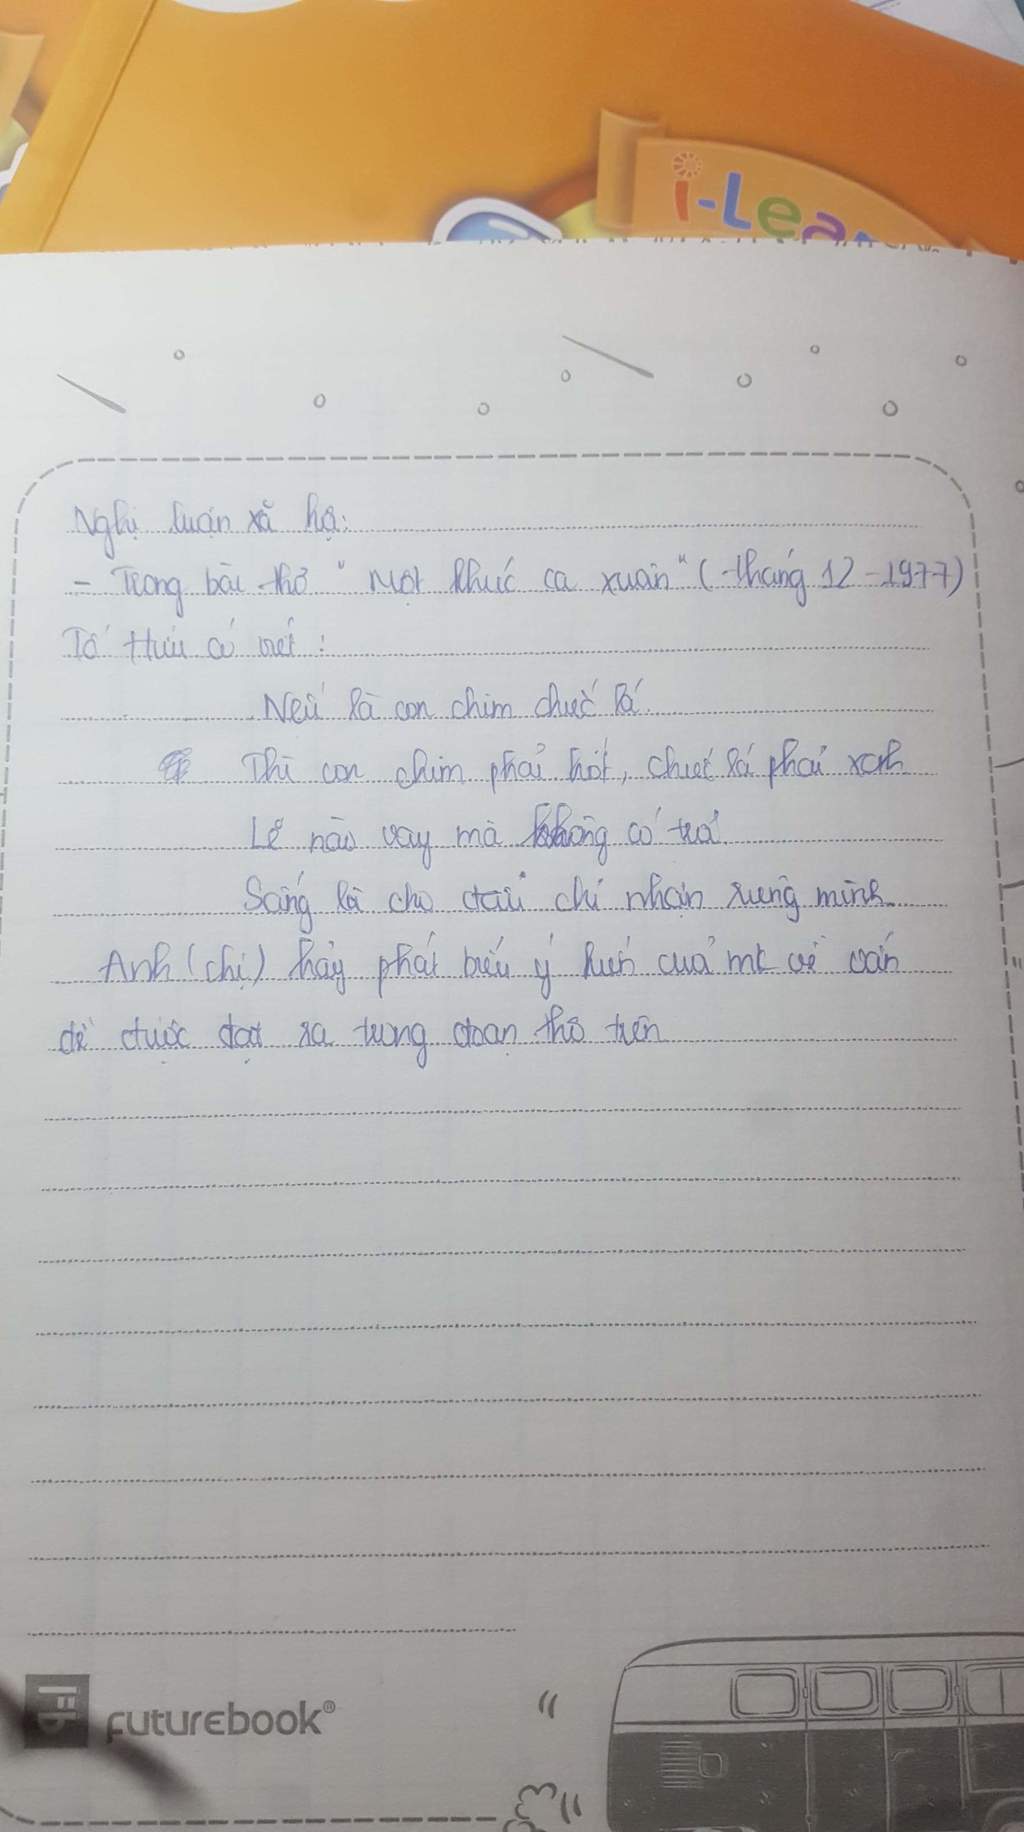 i-Lea
Nghị luận xã hộ:
- Trong bài thơ "Một khúc ca xuân" (tháng 12-1977)
Tố Hữu có viết:
Nếu là con chim chiếc lá
Thì con chim phải hót, chiếc lá phải xanh
Lẽ nào vay mà không có trả
Sống là cho đâu chỉ nhận riêng mình
Anh (chị) hãy phát biểu ý kiến của mk về vấn
đề được đặt ra trong đoạn thơ trên
FUTUREBOOK®